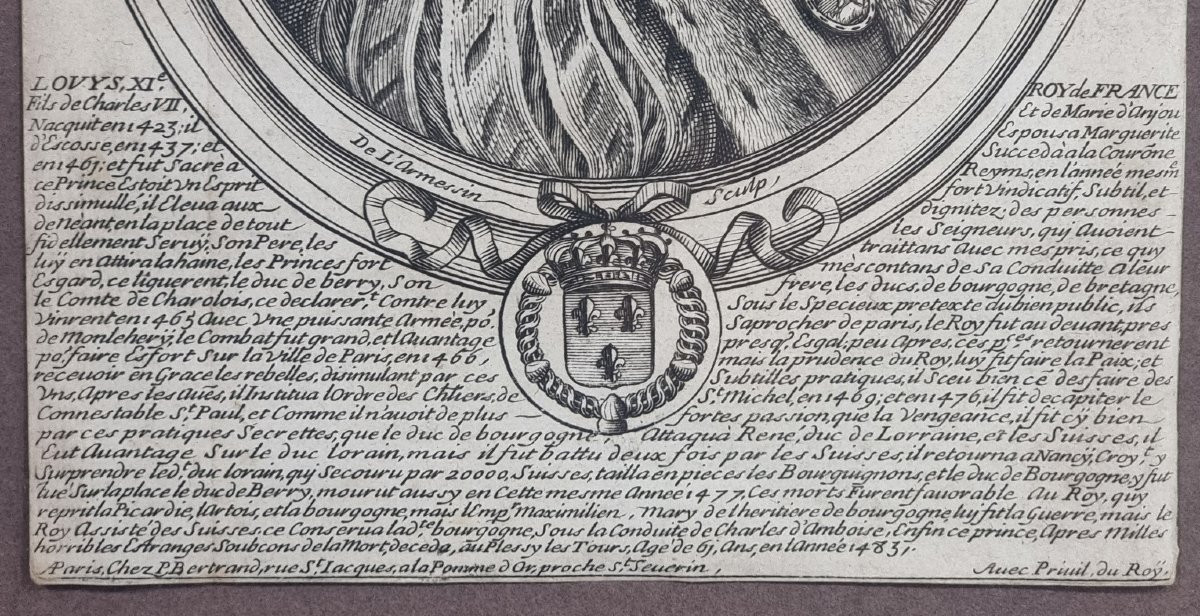 LOUYS, XI.e ROY de FRANCE
Fils de Charles VII, Et de Marie d'Anjou
Nacquit en 1423; il Espousa Marguerite
d'Escosse, en 1437; et Succeda à la Courõne
en 1461; et fut Sacrè a Reyms, en l'année mesm
ce Prince Estoit Vn Esprit fort Vindicatif, Subtil, et
dissimullé, il Eleua aux dignitez; des personnes
de nèant, en la place de tout les Seigneurs, qui Auoient
fidellement Seruÿ, Son Pere, les traittans Auec mespris, ce quy
luÿ en Attira la haine, les Princes fort mèscontans de Sa Conduitte A leur
Esgard, ce liguerent, le duc de berry, Son frere, les ducs, de bourgogne, de bretagne,
le Comte de Charolois, ce declarer.t Contre luy Sous le Specieux pretexte du bien public, ils
Vinrent en 1465 Auec Vne puissante Armèe, po, Saprocher de paris, le Roy fut au deuant, pres
de Monlehery, le Combat fut grand, et l Auantage presq, Esgal; peu Apres, ces p.ces retournerent
po, faire Esfort Sur la Ville de Paris, en 1466, mais la prudence du Roy, luy fit faire la Paix; et
receuoir en Grace les rebelles, disimulant par ces Subtilles pratiques, il Sceu bien ce desfaire des
Vns, Apres les Aũes, il Institua l Ordre des Chliers, de S.t Michel, en 1469; et en 1476, il fit decapiter le
Connestable S.t Paul, et Comme il n'auoit de plus fortes passion, que la Vengeance, il fit cÿ bien
par ces pratiques Secrettes, que le duc de bourgogne, Attaqua René, duc de Lorraine, et les Suisses, il
Eut Auantage Sur le duc lorain, mais il fut battu deux fois par les Suisses, il retourna a Nancÿ, Croy.t y
Surprendre led.t duc lorain, qui Secouru par 20000, Suisses, tailla en pieces les Bourguignons, et le duc de Bourgogne, y fut
tue Sur la place le duc de Berry, mourut aussy en Cette mesme Année 1477, Ces morts Furent fauorable Au Roy, quy
reprit la Picardie, l Artois, et la bourgogne, mais l Emp.r Maximilien, Mary de l heritiere de bourgogne, luy fit la Guerre, mais le
Roy Assisté des Suisses ce Conserua lad.te bourgogne, Sous la Conduite de Charles d'Amboise, Enfin ce prince, Apres Milles
horribles Estranges Soubcons de la Mort, deceda, au Plessy les Tours, Age de 61, Ans, en l Année 1483,
De L'Armessin Sculp,
A Paris, Chez P. Bertrand, rue S.t Iacques, a la Pomme d'Or, proche S.t Seuerin, Auec Priuil, du Roÿ.